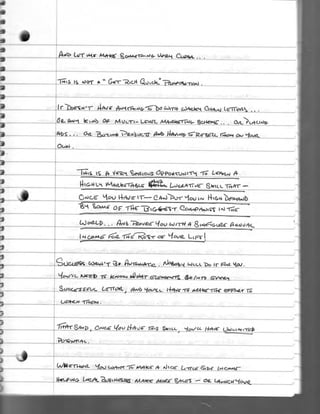 AND LET ME MAKE SOMETHING VERY CLEAR...
THIS IS NOT A "GET RICH QUICK" PROPOSITION.
IT DOESN'T HAVE ANYTHING TO DO WITH WACKY CHAIN LETTERS ...
OR ANY KIND OF MULTI-LEVEL MARKETING SCHEME... OR PLACING
ADS... OR BUYING PRODUCTS AND HAVING TO RESELL THEM ON YOUR
OWN.
THIS IS A VERY SERIOUS OPPORTUNITY TO LEARN A
HIGHLY MARKETABLE AND LUCRATIVE SKILL THAT —
ONCE YOU HAVE IT — CAN PUT YOU IN HIGH DEMAND
BY SOME OF THE BIGGEST COMPANIES IN THE
WORLD... AND PROVIDE YOU WITH A SIX-FIGURE ANNUAL
INCOME FOR THE REST OF YOUR LIFE!
SUCCESS WON'T BE AUTOMATIC. NOBODY WILL DO IT FOR YOU.
YOU'LL NEED TO KNOW WHAT ELEMENTS GO INTO EVERY
SUCCESSFUL LETTER, AND YOU'LL HAVE TO MAKE THE EFFORT TO
LEARN THEM.
THAT SAID, ONCE YOU HAVE THIS SKILL, YOU'LL HAVE UNLIMITED
POTENTIAL.
WHETHER YOU WANT TO MAKE A NICE LITTLE SIDE INCOME
HELPING LOCAL BUSINESSES MAKE MORE SALES — OR LAUNCH YOUR